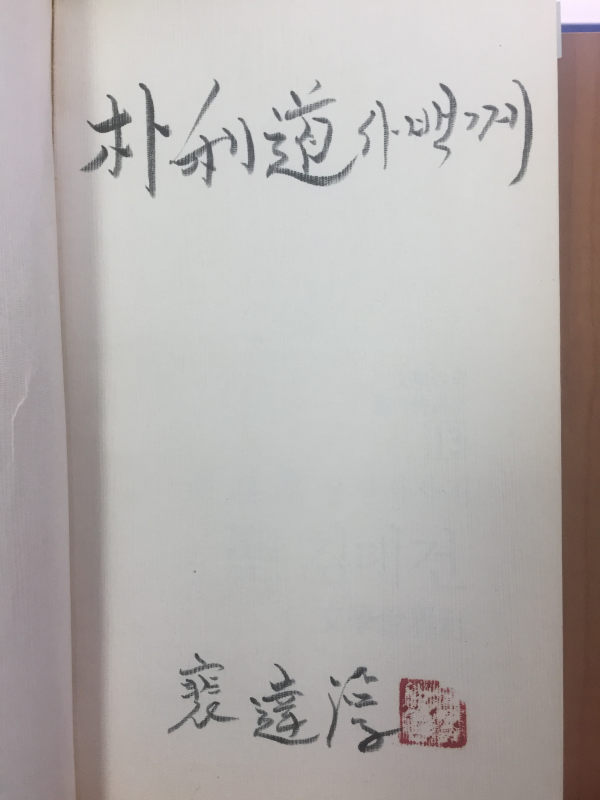 朴利道 사백께
裵達淳